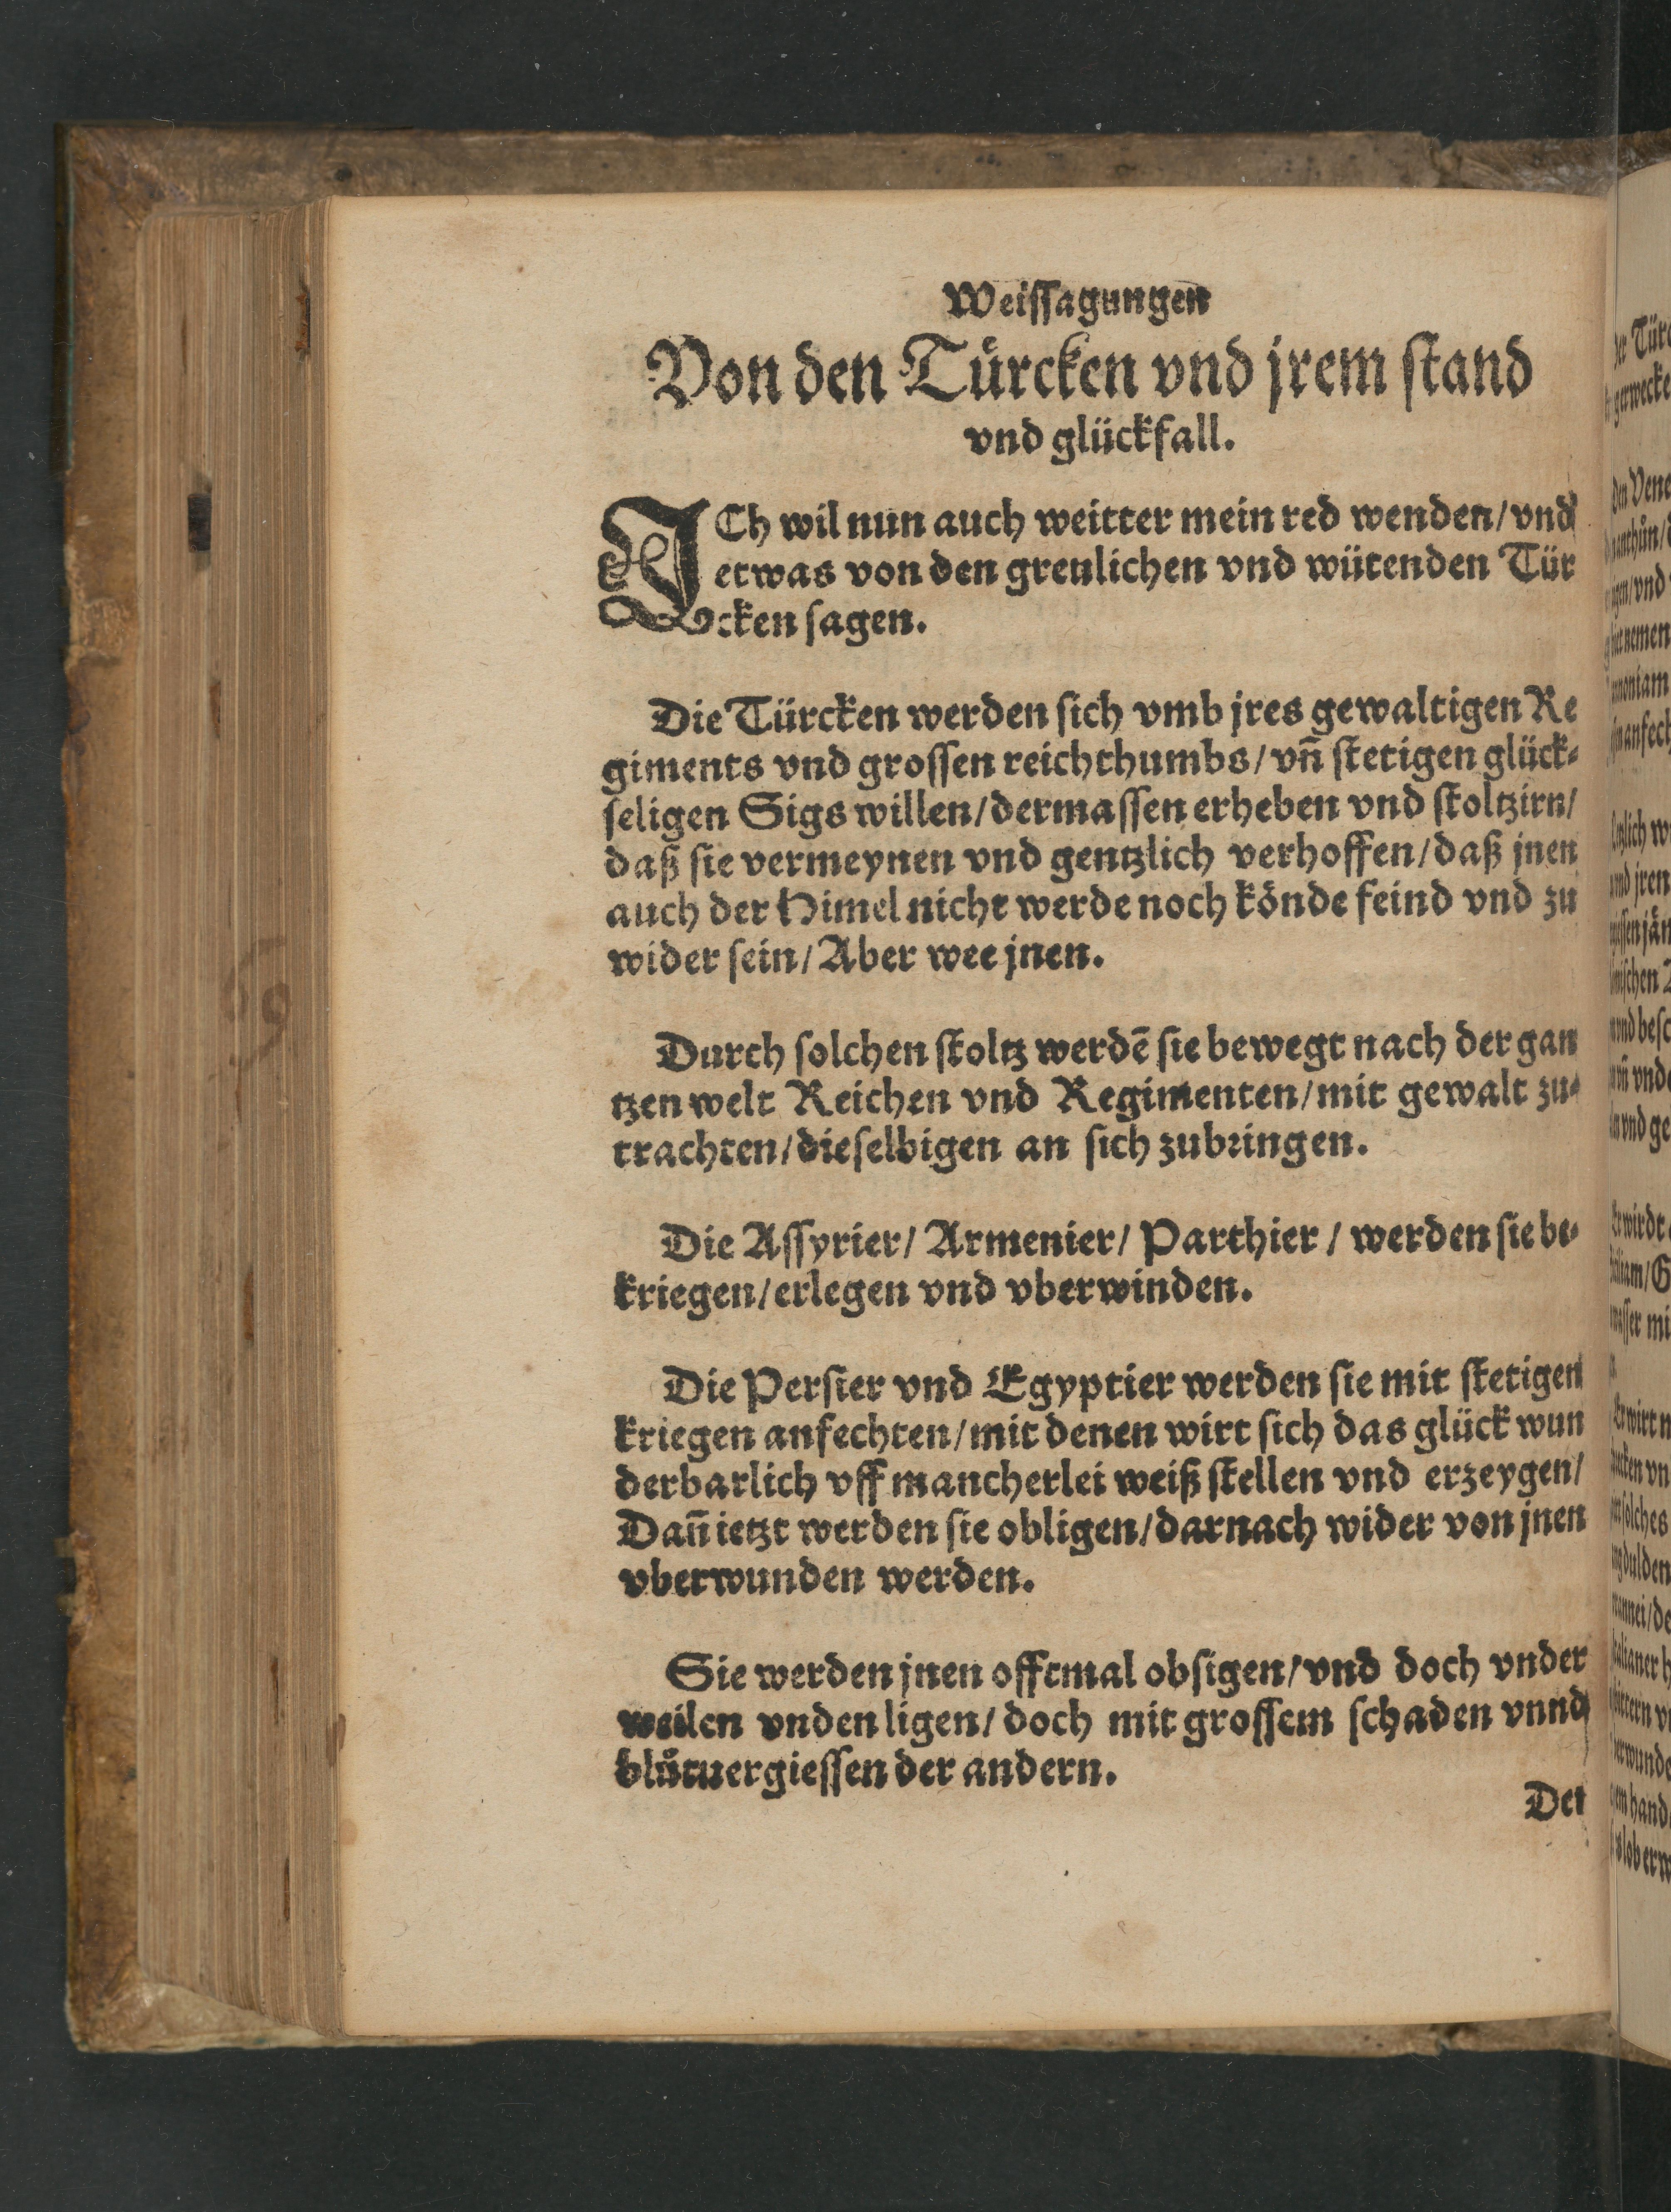 Weiſſagungen
Von den Tuͤrcken vnd jrem ſtand
vnd gluͤckfall.
ICh wil nun auch weitter mein red wenden/ vnd
etwas von den greulichen vnd wuͤtenden Tuͤr
cken ſagen.
Die Tuͤrcken werden ſich vmb jres gewaltigen Re
giments vnd groſſen reichthumbs/ vñ ſtetigen gluͤck⸗
ſeligen Sigs willen/ dermaſſen erheben vnd ſtoltzirn/
daß ſie vermeynen vnd gentzlich verhoffen/ daß jnen
auch der Himel nicht werde noch koͤnde feind vnd zu
wider ſein/ Aber wee jnen.
Durch ſolchen ſtoltz werdē ſie bewegt nach der gan
tzen welt Reichen vnd Regimenten/ mit gewalt zu⸗
trachten/ dieſelbigen an ſich zubꝛingen.
Die Aſſyrier/ Armenier/ Parthier / werden ſie be⸗
kriegen/ erlegen vnd vberwinden.
Die Perſier vnd Egyptier werden ſie mit ſtetigen
kriegen anfechten/ mit denen wirt ſich das gluͤck wun
derbarlich vff mancherlei weiß ſtellen vnd erzeygen/
Dañ ietzt werden ſie obligen/ darnach wider von jnen
vberwunden werden.
Sie werden jnen offtmal obſigen/ vnd doch vnder
weilen vnden ligen/ doch mit groſſem ſchaden vnnd
bluͦtuergieſſen der andern.
Der